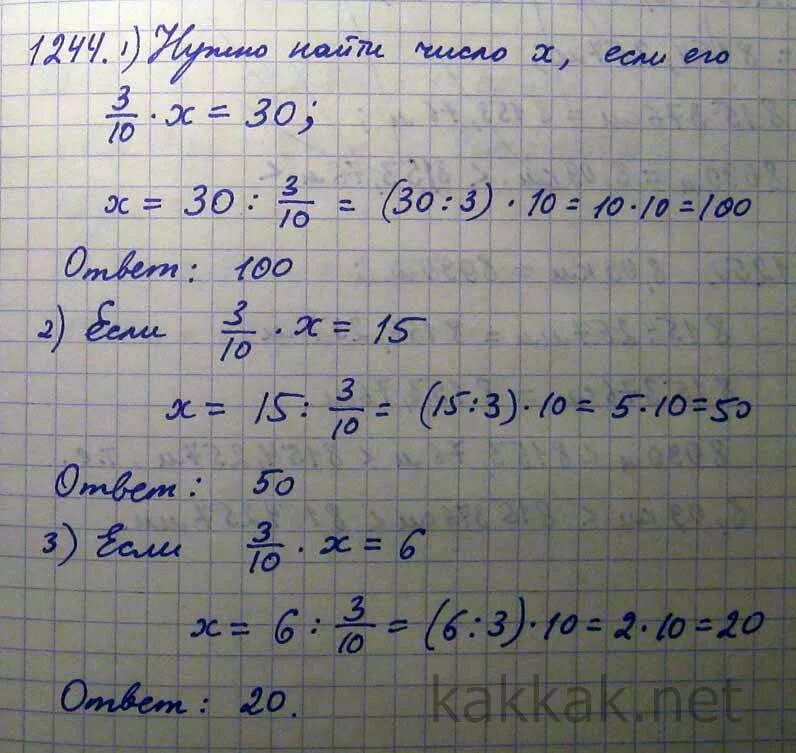 1244. 1) Нужно найти число x, если его
3/10 · x = 30;
x = 30 : 3/10 = (30 : 3) · 10 = 10 · 10 = 100
Ответ: 100
2) Если 3/10 · x = 15
x = 15 : 3/10 = (15 : 3) · 10 = 5 · 10 = 50
Ответ: 50
3) Если 3/10 · x = 6
x = 6 : 3/10 = (6 : 3) · 10 = 2 · 10 = 20
Ответ: 20.
kakkak.net